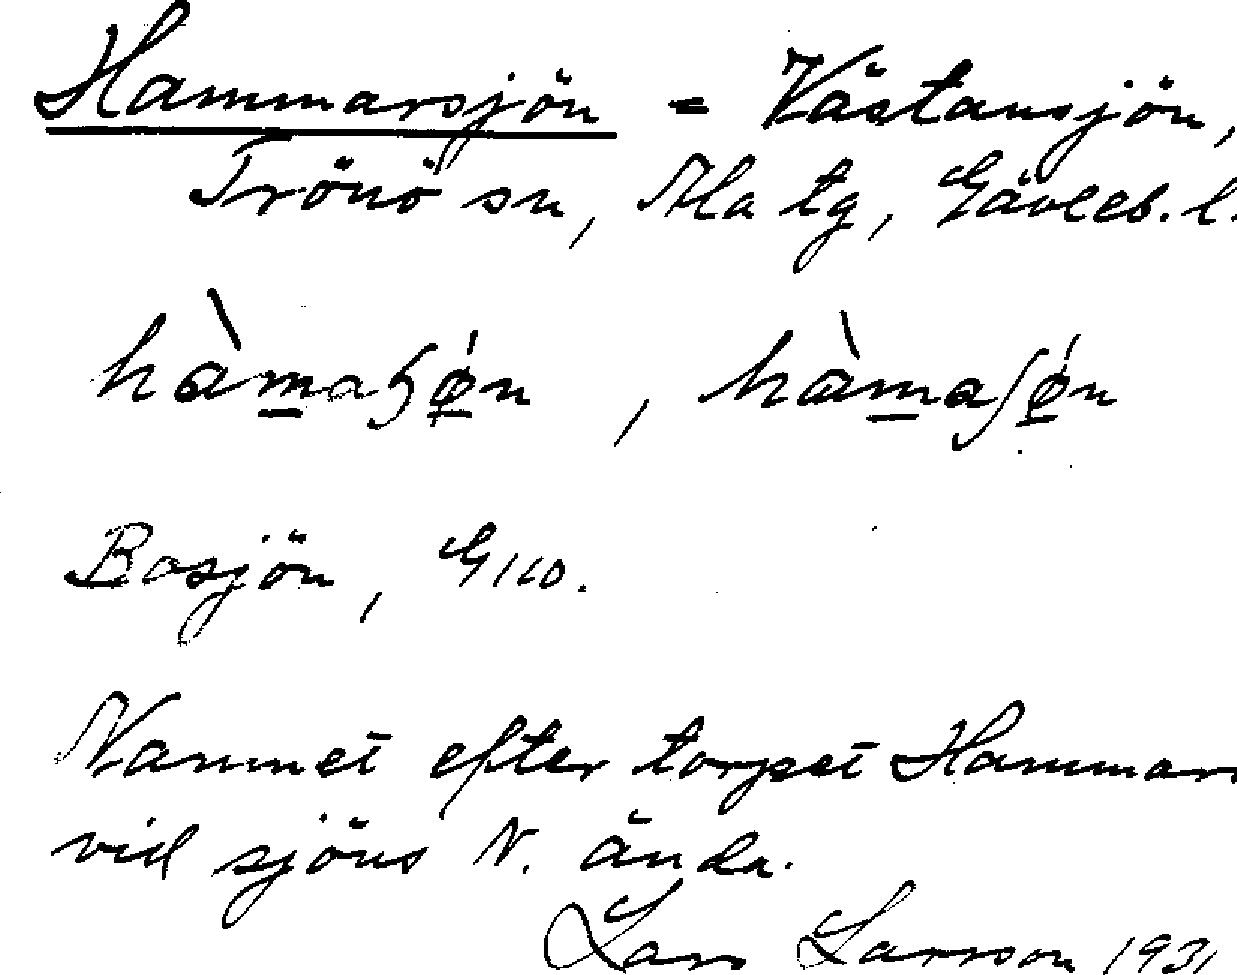 Hammarsjön = Västansjön,
Trönö sn, Ala tg, Gävleb. l.
hàmaʂǿn, hàmaʃǿn
Bosjön, GK0.
Namnet efter torpet Hammarn
vid sjöns N. ända.
Lars Larsson 1931